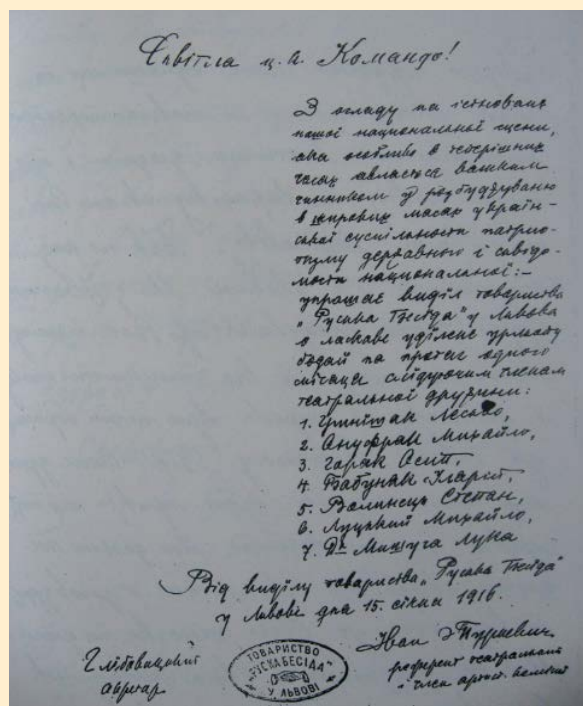 Світла ц. к. Командо!
З огляду на істнованє
нашої національної сцени,
яка особливо в теперішних
часах являється важним
чинником у розбуджуваню
в широких масах україн-
ської суспільности патріо-
тизму державного і свідо-
мости національної: —
упрашає виділ товариства
"Руска Бесїда" у Львовi
о ласкаве уділенє урльопу
бодай на протяг одного
місяця слїдуючим членам
театральної дружини:
1. Гринїшак Лесько,
2. Онуфрак Михайло,
3. Горак Осип,
4. Бабуняк Іларій,
5. Волинець Степан,
6. Луцький Михайло,
7. Др Мишуга Лука
Від виділу товариства "Руска Бесїда"
у Львові дня 15. сїчня 1916.
Глібовицкий
секретар.
ТОВАРИСТВО
"РУСКА БЕСІДА"
У ЛЬВОВІ
Іван Туркевич
референт театральний
і член артист. комісиї